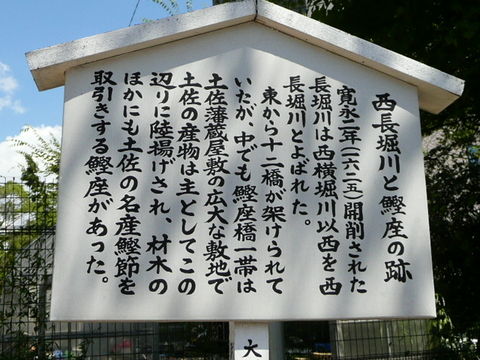 西長堀川と鰹座の跡
寛永二年(一六二五)開削された
長堀川は西横堀川以西を西
長堀川とよばれた。
東から十二橋が架けられて
いたが、中でも鰹座橋一帯は
土佐藩蔵屋敷の広大な敷地で
土佐の産物は主としてこの
辺りに陸揚げされ、材木の
ほかにも土佐の名産鰹節を
取引きする鰹座があった。
大